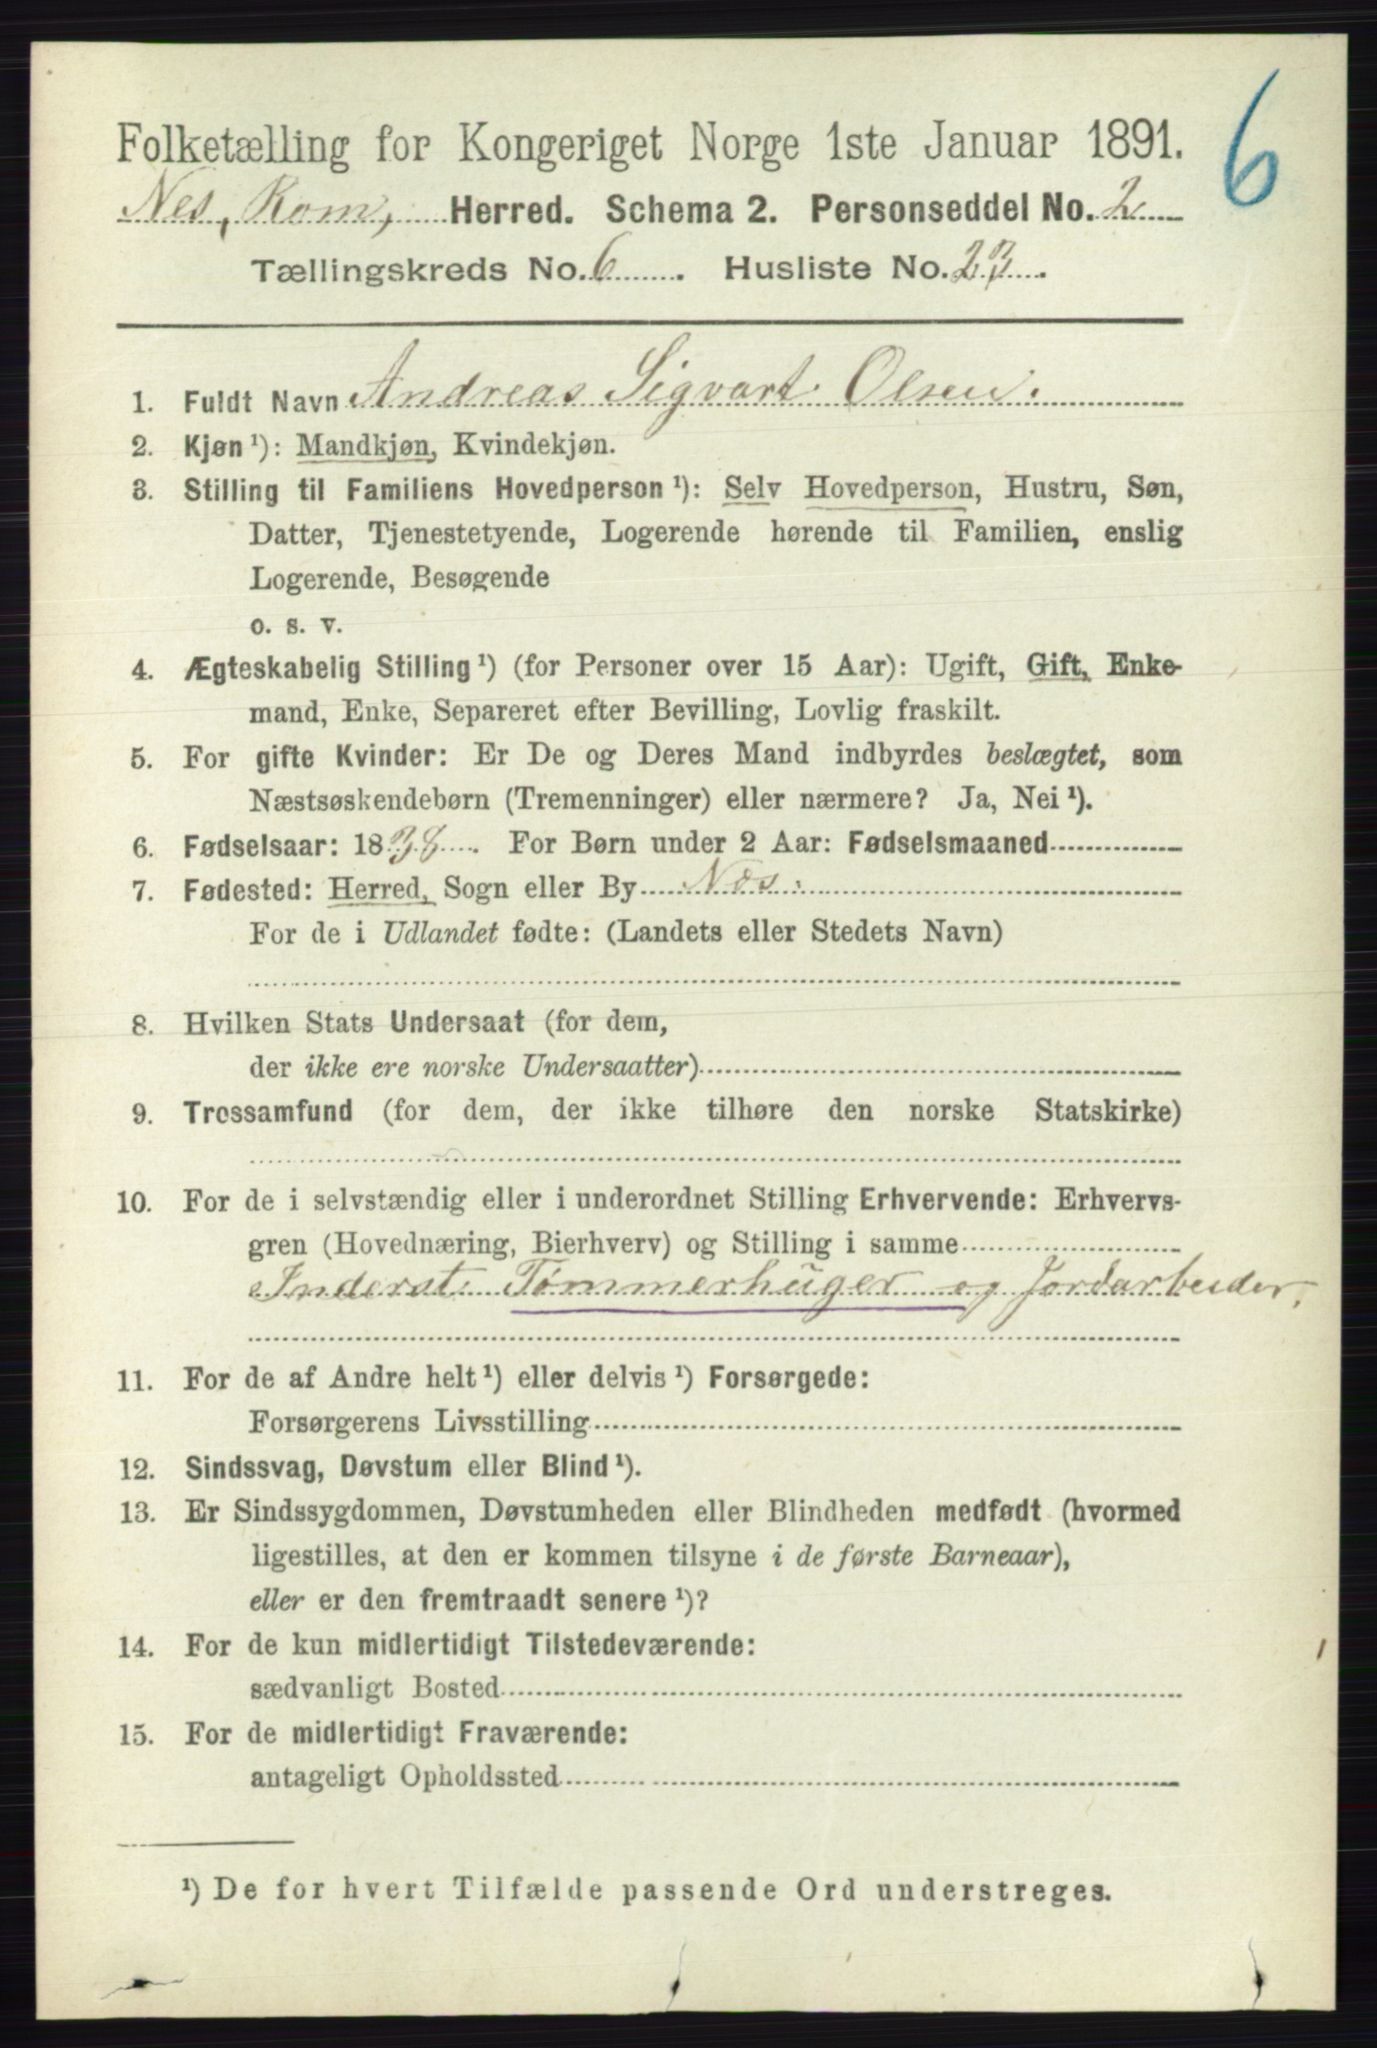 6
Folketælling for Kongeriget Norge 1ste Januar 1891.
Nes, Rom, Herred. Schema 2. Personseddel No. 2
Tællingskreds No. 6. Husliste No. 23.
1. Fuldt Navn Andreas Sigvart Olsen.
2. Kjøn ¹): Mandkjøn, Kvindekjøn.
3. Stilling til Familiens Hovedperson ¹): Selv Hovedperson, Hustru, Søn,
Datter, Tjenestetyende, Logerende hørende til Familien, enslig
Logerende, Besøgende
o. s. v.
4. Ægteskabelig Stilling ¹) (for Personer over 15 Aar): Ugift, Gift, Enke-
mand, Enke, Separeret efter Bevilling, Lovlig fraskilt.
5. For gifte Kvinder: Er De og Deres Mand indbyrdes beslægtet, som
Næstsøskendebørn (Tremenninger) eller nærmere? Ja, Nei ¹).
6. Fødselsaar: 1838. For Børn under 2 Aar: Fødselsmaaned
7. Fødested: Herred, Sogn eller By Næs.
For de i Udlandet fødte: (Landets eller Stedets Navn)
8. Hvilken Stats Undersaat (for dem,
der ikke ere norske Undersaatter)
9. Trossamfund (for dem, der ikke tilhøre den norske Statskirke)
10. For de i selvstændig eller i underordnet Stilling Erhvervende: Erhvervs-
gren (Hovednæring, Bierhverv) og Stilling i samme
Inderst. Tømmerhuger og Jordarbeider.
11. For de af Andre helt ¹) eller delvis ¹) Forsørgede:
Forsørgerens Livsstilling
12. Sindssvag, Døvstum eller Blind ¹).
13. Er Sindssygdommen, Døvstumheden eller Blindheden medfødt (hvormed
ligestilles, at den er kommen tilsyne i de første Barneaar),
eller er den fremtraadt senere ¹)?
14. For de kun midlertidigt Tilstedeværende:
sædvanligt Bosted
15. For de midlertidigt Fraværende:
antageligt Opholdssted
¹) De for hvert Tilfælde passende Ord understreges.